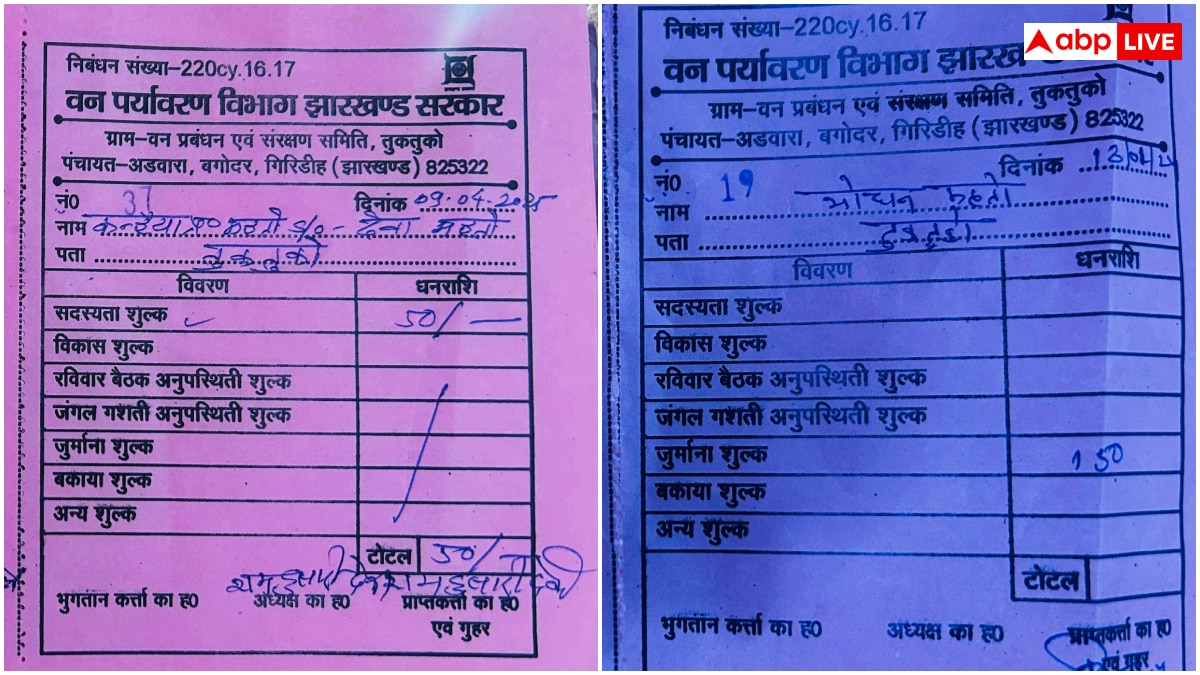 निबंधन संख्या–220cy.16.17
वन पर्यावरण विभाग झारखण्ड सरकार
ग्राम–वन प्रबंधन एवं संरक्षण समिति, तुकतुको
पंचायत–अडवारा, बगोदर, गिरिडीह (झारखण्ड) 825322
नं0 37 दिनांक 09.04.2025
नाम कन्हैया प्र० महतो S/o - महतो
पता तुकतुको
विवरण धनराशि
सदस्यता शुल्क 50/—
विकास शुल्क
रविवार बैठक अनुपस्थिती शुल्क
जंगल गशती अनुपस्थिती शुल्क
जुर्माना शुल्क
बकाया शुल्क
अन्य शुल्क
टोटल 50/-
भुगतान कर्त्ता का ह0 अध्यक्ष का ह0 प्राप्तकर्त्ता का ह0
एवं गुहर
abp LIVE
निबंधन संख्या–220cy.16.17
वन पर्यावरण विभाग
ग्राम–वन प्रबंधन एवं संरक्षण समिति, तुकतुको
पंचायत–अडवारा, बगोदर, गिरिडीह (झारखण्ड) 825322
नं0 19 दिनांक
नाम महतो
पता तुकतुको
विवरण धनराशि
सदस्यता शुल्क
विकास शुल्क
रविवार बैठक अनुपस्थिती शुल्क
जंगल गशती अनुपस्थिती शुल्क
जुर्माना शुल्क 150
बकाया शुल्क
अन्य शुल्क
टोटल
भुगतान कर्त्ता का ह0 अध्यक्ष का ह0 प्राप्तकर्त्ता का ह0
एवं गुहर